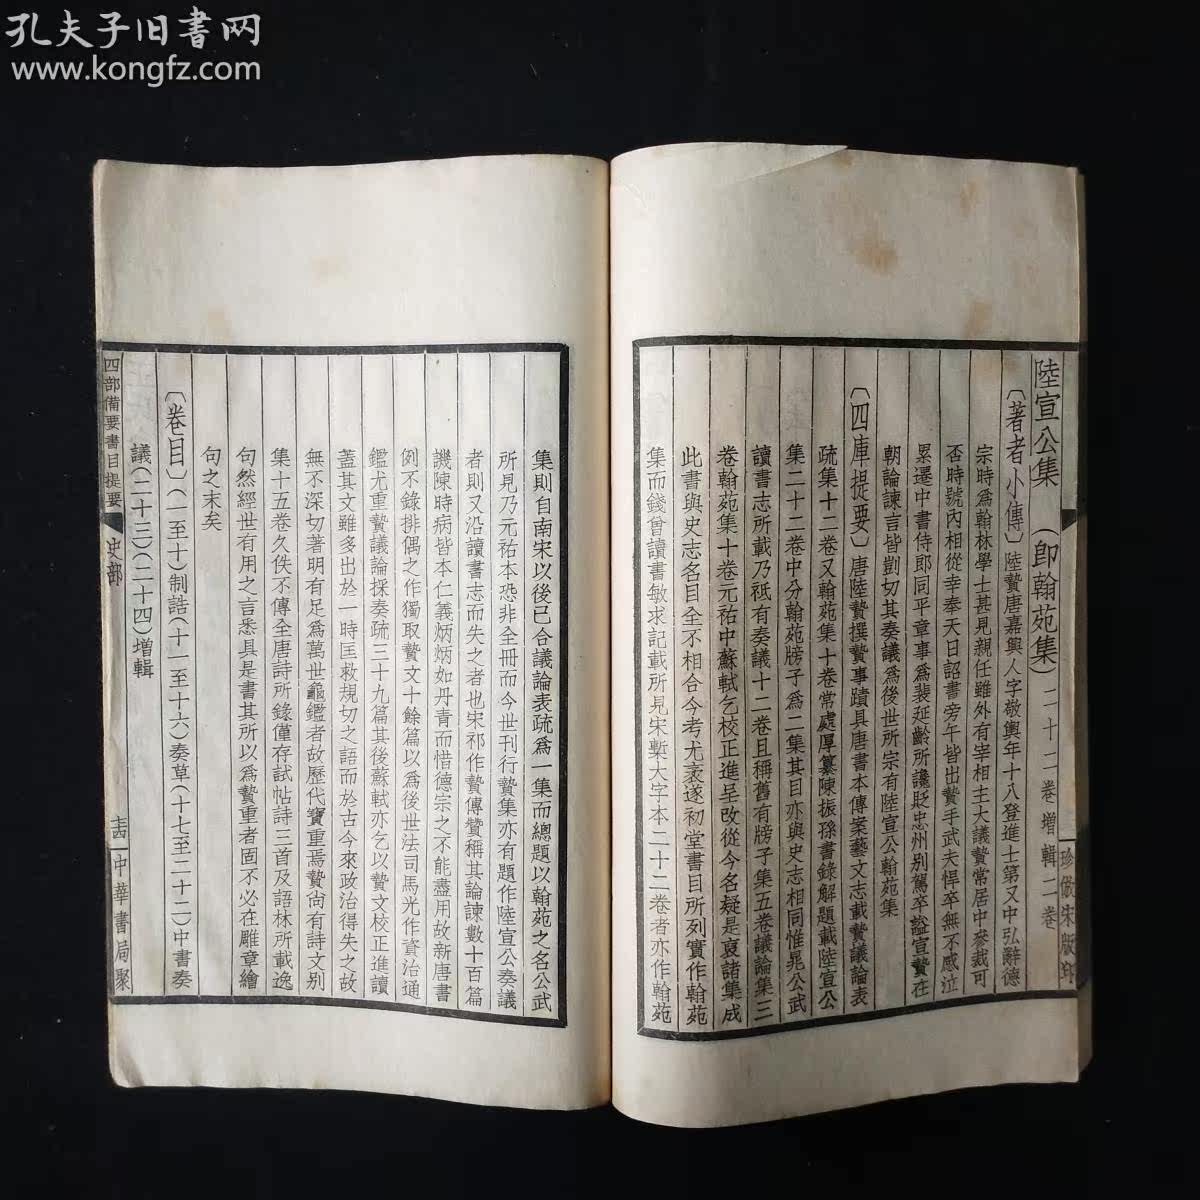 孔夫子旧書网
www.kongfz.com
陸宣公集(即翰苑集)二十二卷增輯二卷
〔著者小傳〕陸贄唐嘉興人字敬輿年十八登進士第又中弘辭德
宗時爲翰林學士甚見親任雖外有宰相主大議贄常居中參裁可
否時號內相從幸奉天日詔書旁午皆出贄手武夫悍卒無不感泣
累遷中書侍郎同平章事爲裴延齡所讒貶忠州別駕卒謚宣贄在
朝論諫言皆剴切其奏議爲後世所宗有陸宣公翰苑集
〔四庫提要〕唐陸贄撰贄事蹟具唐書本傳案藝文志載贄議論表
疏集十二卷又翰苑集十卷常處厚纂陳振孫書錄解題載陸宣公
集二十二卷中分翰苑牓子爲二集其目亦與史志相同惟晁公武
讀書志所載乃祗有奏議十二卷且稱舊有牓子集五卷議論集三
卷翰苑集十卷元祐中蘇軾乞校正進呈改從今名疑是裒諸集成
此書與史志名目全不相合今考尤袤遂初堂書目所列實作翰苑
集而錢曾讀書敏求記載所見宋槧大字本二十二卷者亦作翰苑
珍倣宋版印
集則自南宋以後已合議論表疏爲一集而總題以翰苑之名公武
所見乃元祐本恐非全冊而今世刊行贄集亦有題作陸宣公奏議
者則又沿讀書志而失之者也宋祁作贄傳贊稱其論諫數十百篇
譏陳時病皆本仁義炳炳如丹青而惜德宗之不能盡用故新唐書
例不錄排偶之作獨取贄文十餘篇以爲後世法司馬光作資治通
鑑尤重贄議論採奏疏三十九篇其後蘇軾亦乞以贄文校正進讀
蓋其文雖多出於一時匡救規切之語而於古今來政治得失之故
無不深切著明有足爲萬世龜鑑者故歷代寶重焉贄尚有詩文別
集十五卷久佚不傳全唐詩所錄僅存試帖詩三首及語林所載逸
句然經世有用之言悉具是書其所以爲贄重者固不必在雕章繪
句之末矣
〔卷目〕(一至十)制誥(十一至十六)奏草(十七至二十二)中書奏
議(二十三)(二十四)增輯
四部備要書目提要 史部 中華書局聚